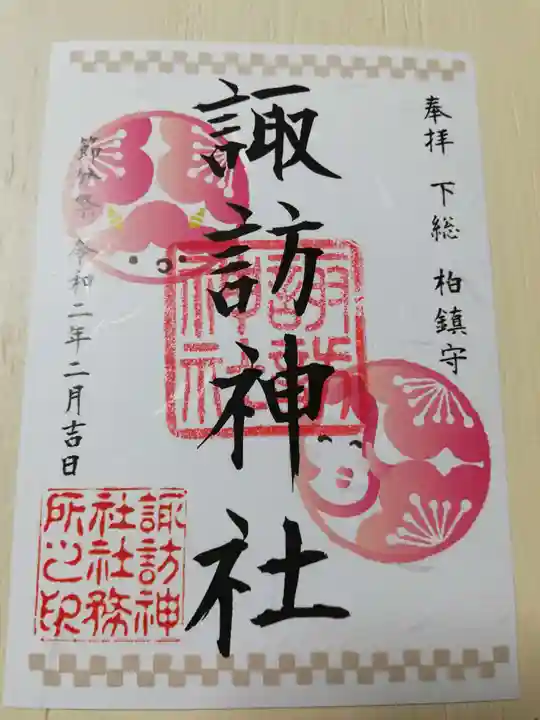 奉拝 下総 柏鎮守
諏訪神社
節分祭 令和二年二月吉日
諏訪神社
諏訪神
社社務
所之印